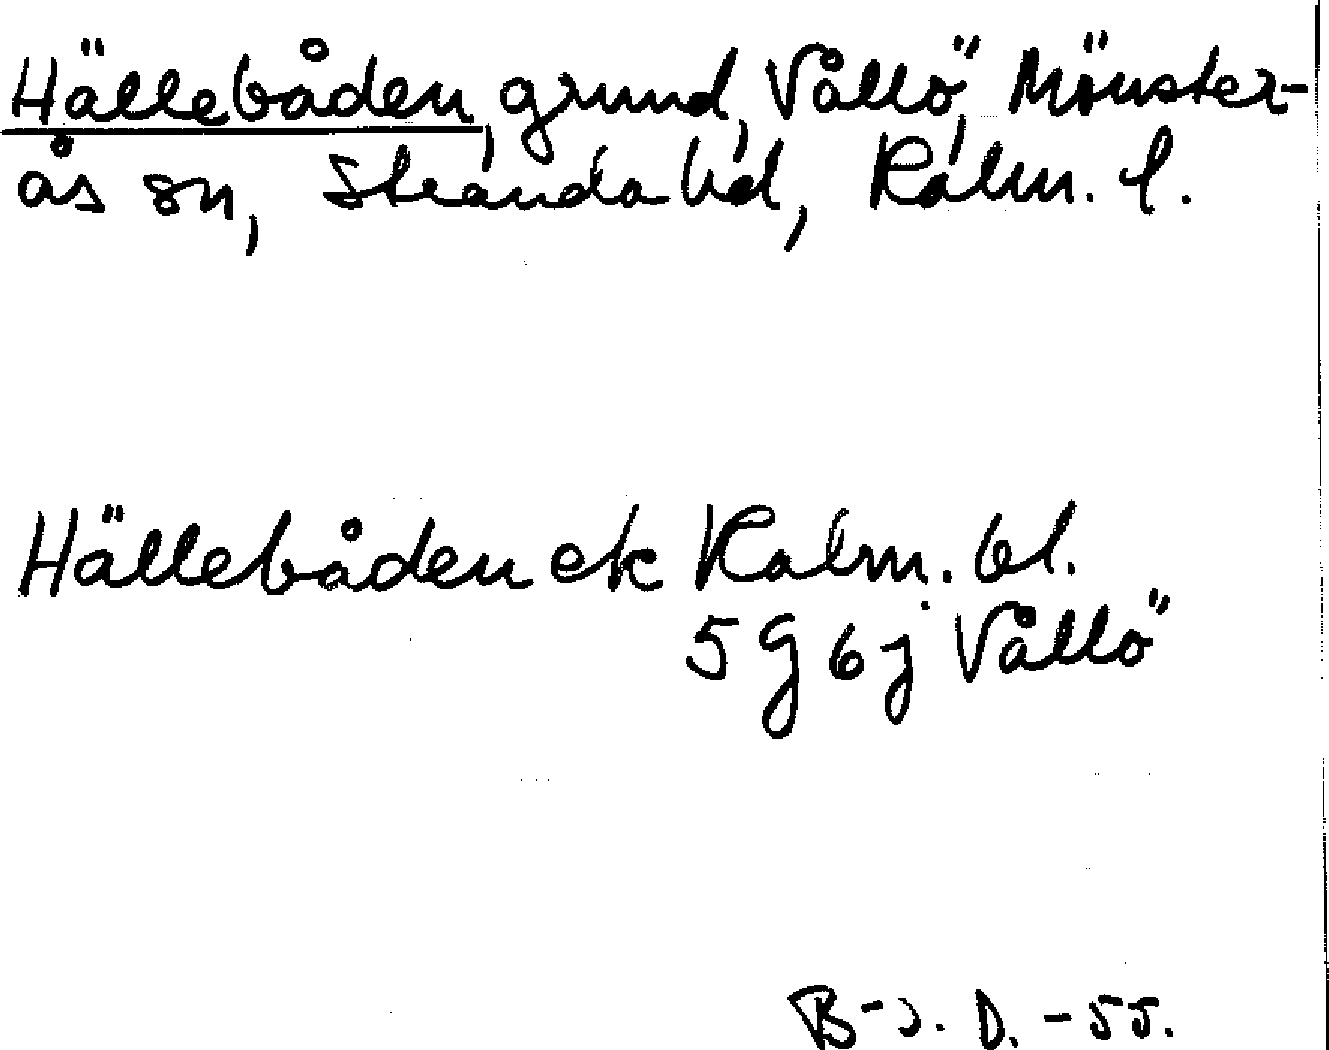 Hällebåden, grund, Vållö, Mönster-
ås sn, Stranda hd, Kalm. l.
Hällebåden ek Kalm. bl.
5 G 6 j Vållö
B-J. D. -55.